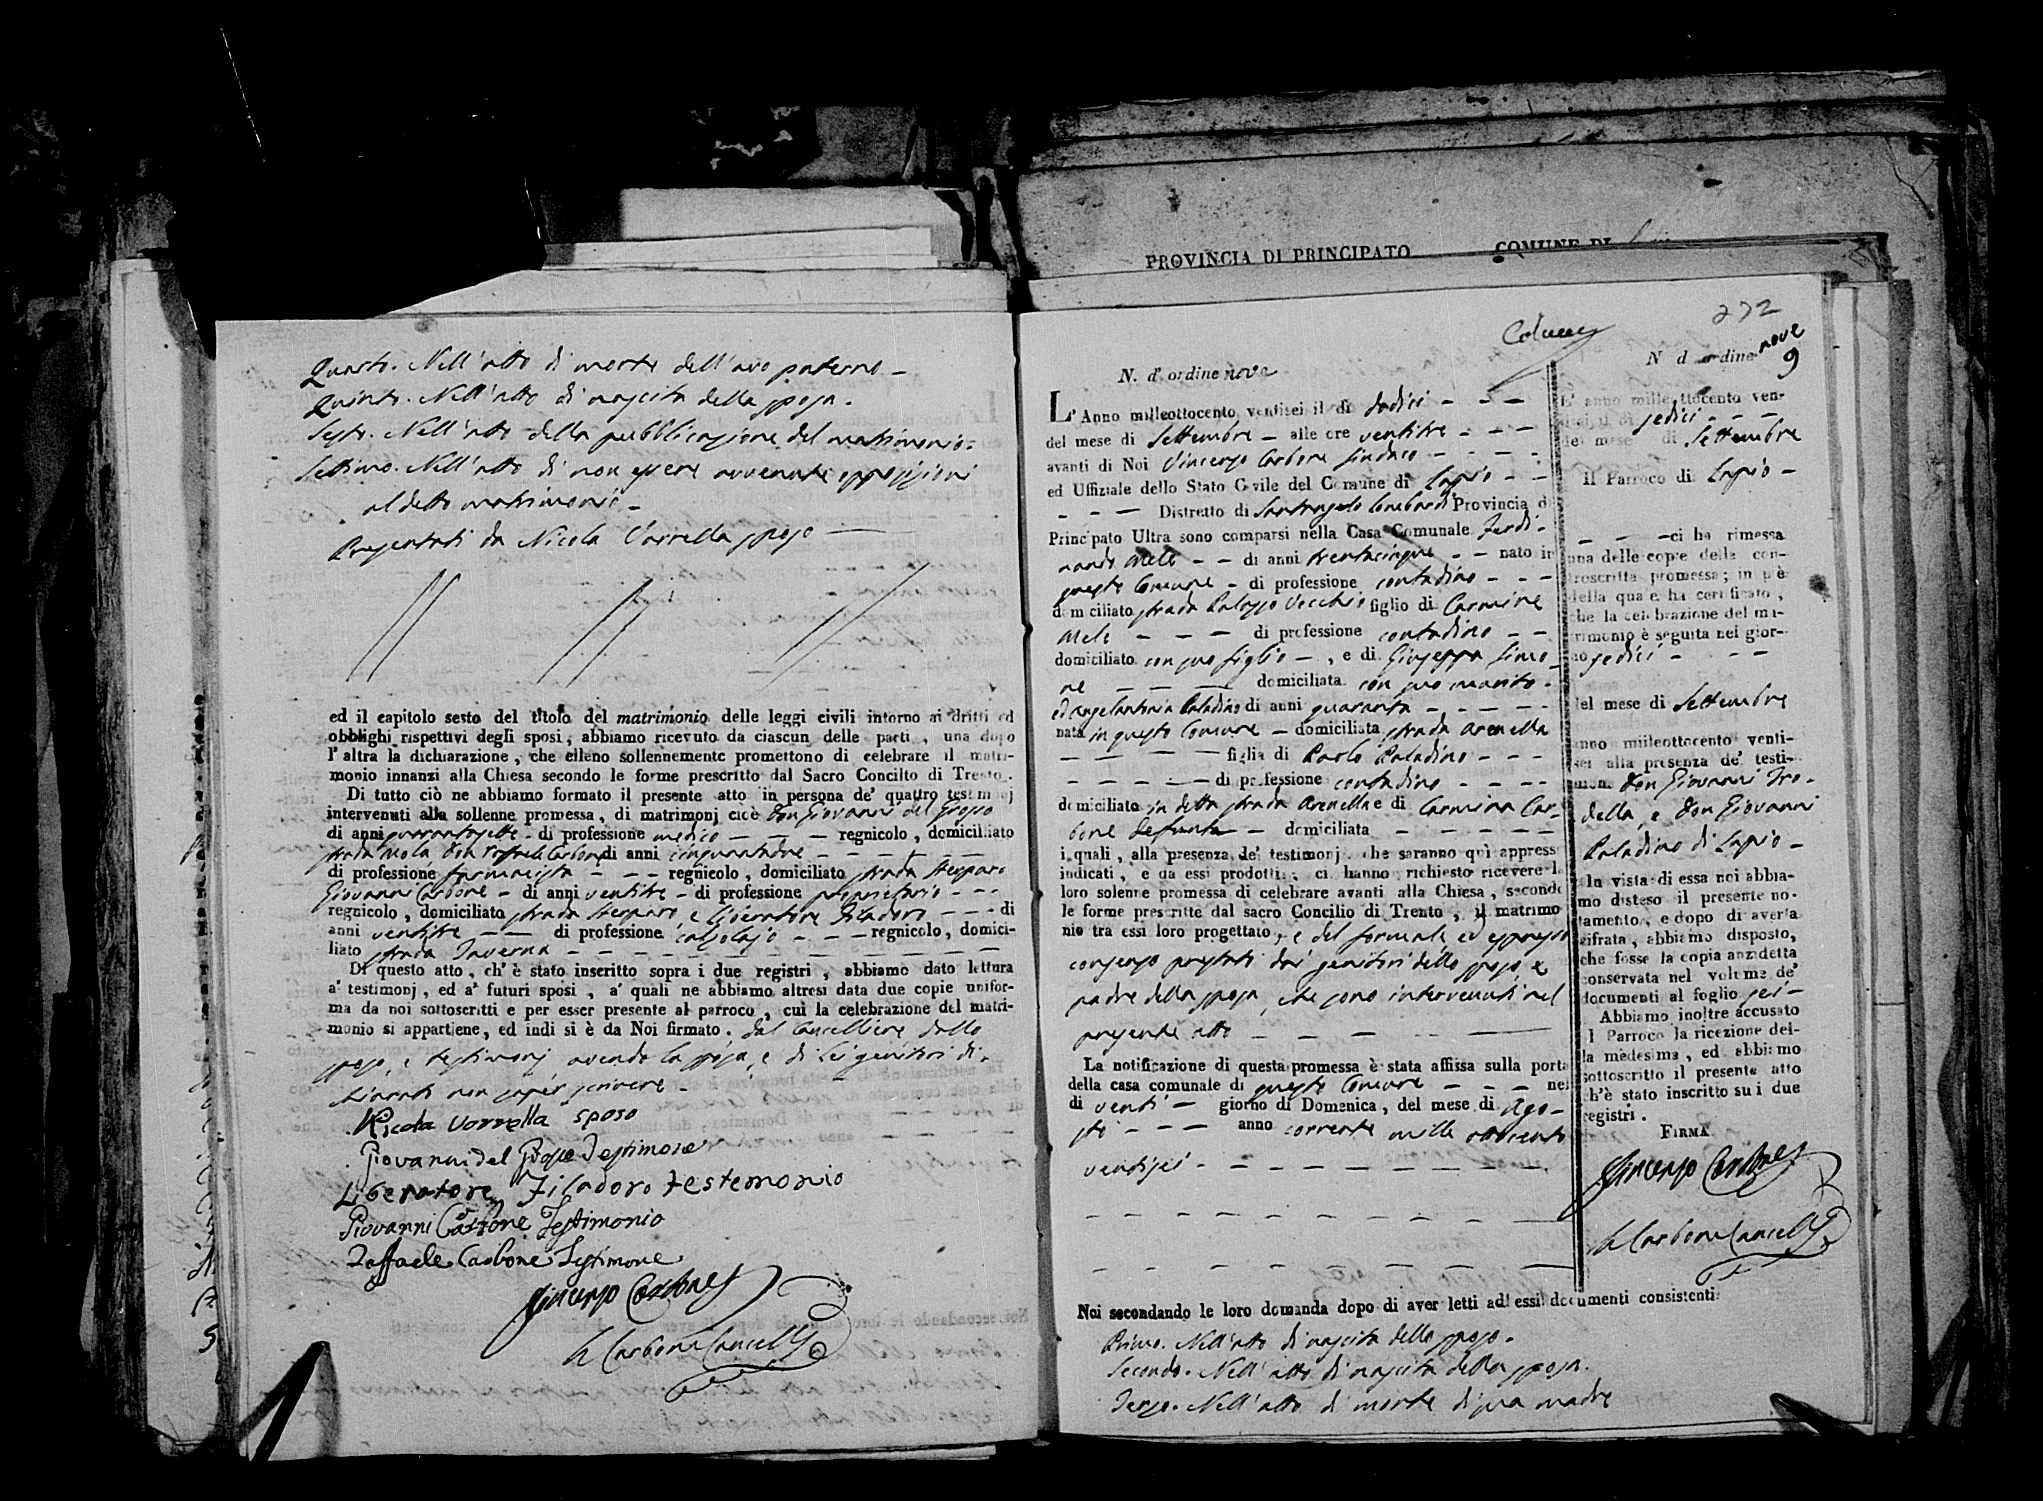 Quarto. Nell'atto di morte dell'avo paterno -
Quinto. Nell'atto di nascita della sposa.
Sesto. Nell'atto della pubblicazione del matrimonio.
Settimo. Nell'atto di non essere avvenute opposizioni
al detto matrimonio -
Presentati da Nicola Vorrella sposo
ed il capitolo sesto del titolo del matrimonio delle leggi civili intorno ai dritti ed
obblighi rispettivi degli sposi, abbiamo ricevuto da ciascun delle parti, una dopo
l'altra la dichiarazione, che elleno sollennemente promettono di celebrare il matri-
monio innanzi alla Chiesa secondo le forme prescritto dal Sacro Concilto di Trento.
Di tutto ciò ne abbiamo formato il presente atto in persona de' quattro testimonj
intervenuti alla sollenne promessa, di matrimonj cioè Don Giovanni del Grosso
di anni quarantasette - di professione medico - - - regnicolo, domiciliato
strada Mola Don Raffaele Carbone di anni cinquantadue - - - -
di professione farmacista - - - regnicolo, domiciliato strada
Giovanni Carbone - di anni ventitre - di professione proprietario - - -
regnicolo, domiciliato strada e Liberatore Filadoro - - - di
anni ventitre - - di professione calzolajo - - - regnicolo, domici-
liato strada Taverna - - - -
Di questo atto, ch' è stato inscritto sopra i due registri, abbiamo dato lettura
a' testimonj, ed a' futuri sposi, a' quali ne abbiamo altresì data due copie unifor-
ma da noi sottoscritti e per esser presente al parroco, cui la celebrazione del matri-
monio si appartiene, ed indi si è da Noi firmato. dal Cancelliere dallo
sposo, e testimonj avendo la sposa, e di lei genitori di-
chiarati non saper scrivere -
Nicola Vorrella sposo
Giovanni del Grosso Testimone
Liberatore Filadoro testemonio
Giovanni Carbone Testimonio
Raffaele Carbone Testimone
Vincenzo Carbone
Carbone Cancell
PROVINCIA DI PRINCIPATO COMUNE DI
272
N. d'ordine nove
L'Anno milleottocento ventisei il dì dodici - - -
del mese di Settembre - alle ore ventitre - - -
avanti di Noi Vincenzo Carbone Sindaco - - - -
ed Uffiziale dello Stato Civile del Comune di Lapio - -
- - - Distretto di Santangelo Lombardi Provincia d
Principato Ultra sono comparsi nella Casa Comunale Ferdi-
nando Mele - - di anni trentacinque - - nato in
questo Comune - di professione contadino - - -
domiciliato strada Palazzo Vecchio figlio di Carmine
Mele - - - di professione contadino - -
domiciliato con suo figlio -, e di Giuseppa Simo-
ne - - - domiciliata con suo marito -
ed Angelantonia Paladino di anni quaranta - - - - -
nata in questo Comune - domiciliata strada Arenella
- - - figlia di Paolo Paladino - - -
- - - - di professione contadino - - - -
domiciliato in detta strada Arenella e di Carmina Car-
bone defunta - domiciliata - - - - -
i quali, alla presenza de' testimonj che saranno quì appress
indicati, e da essi prodotti, ci hanno richiesto ricevere l
loro solenne promessa di celebrare avanti alla Chiesa, secondo
le forme prescritte dal sacro Concilio di Trento, il matrimo
nio tra essi loro progettato, e del formale, ed espresso
consenso prestati dai genitori dello sposo, e
padre della sposa, che sono intervenuti nel
presente atto - - - -
La notificazione di questa promessa è stata affissa sulla porta
della casa comunale di questo Comune - - - nel
di venti - giorno di Domenica, del mese di Ago-
sto - - - anno corrente mille ottocento
ventisei - - - - - - - - -
Noi secondando le loro domanda dopo di aver letti ad essi documenti consistenti
Primo. Nell'atto di nascita dello sposo.
Secondo. Nell'atto di nascita della sposa.
Terzo. Nell'atto di morte di sua madre
N d ordine nove
9
L' anno mille ttocento ven-
tisei il di sedici - - -
del mese di Settembre
il Parroco di Lapio -
- - - ci ha rimessa
una delle copie della con-
troscritta promessa; in piè
della quale ha certificato,
che la celebrazione del ma-
trimonio è seguita nel gior-
no sedici - - -
del mese di Settembre
anno milleottocento venti-
sei alla presenza de' testi-
monj Don Giovanni Tro-
della, e Don Giovanni
Paladino di Lapio -
In vista di essa noi abbia-
mo disteso il presente no-
tamento, e dopo di averla
cifrata, abbiamo disposto,
che fosse la copia anzidetta
conservata nel volume de'
documenti al foglio sei -
Abbiamo inoltre accusato
l Parroco la ricezione del-
la medesima, ed abbiamo
sottoscritto il presente atto
ch'è stato inscritto su i due
registri.
FIRMA
Vincenzo Carbone
Carbone Cancell